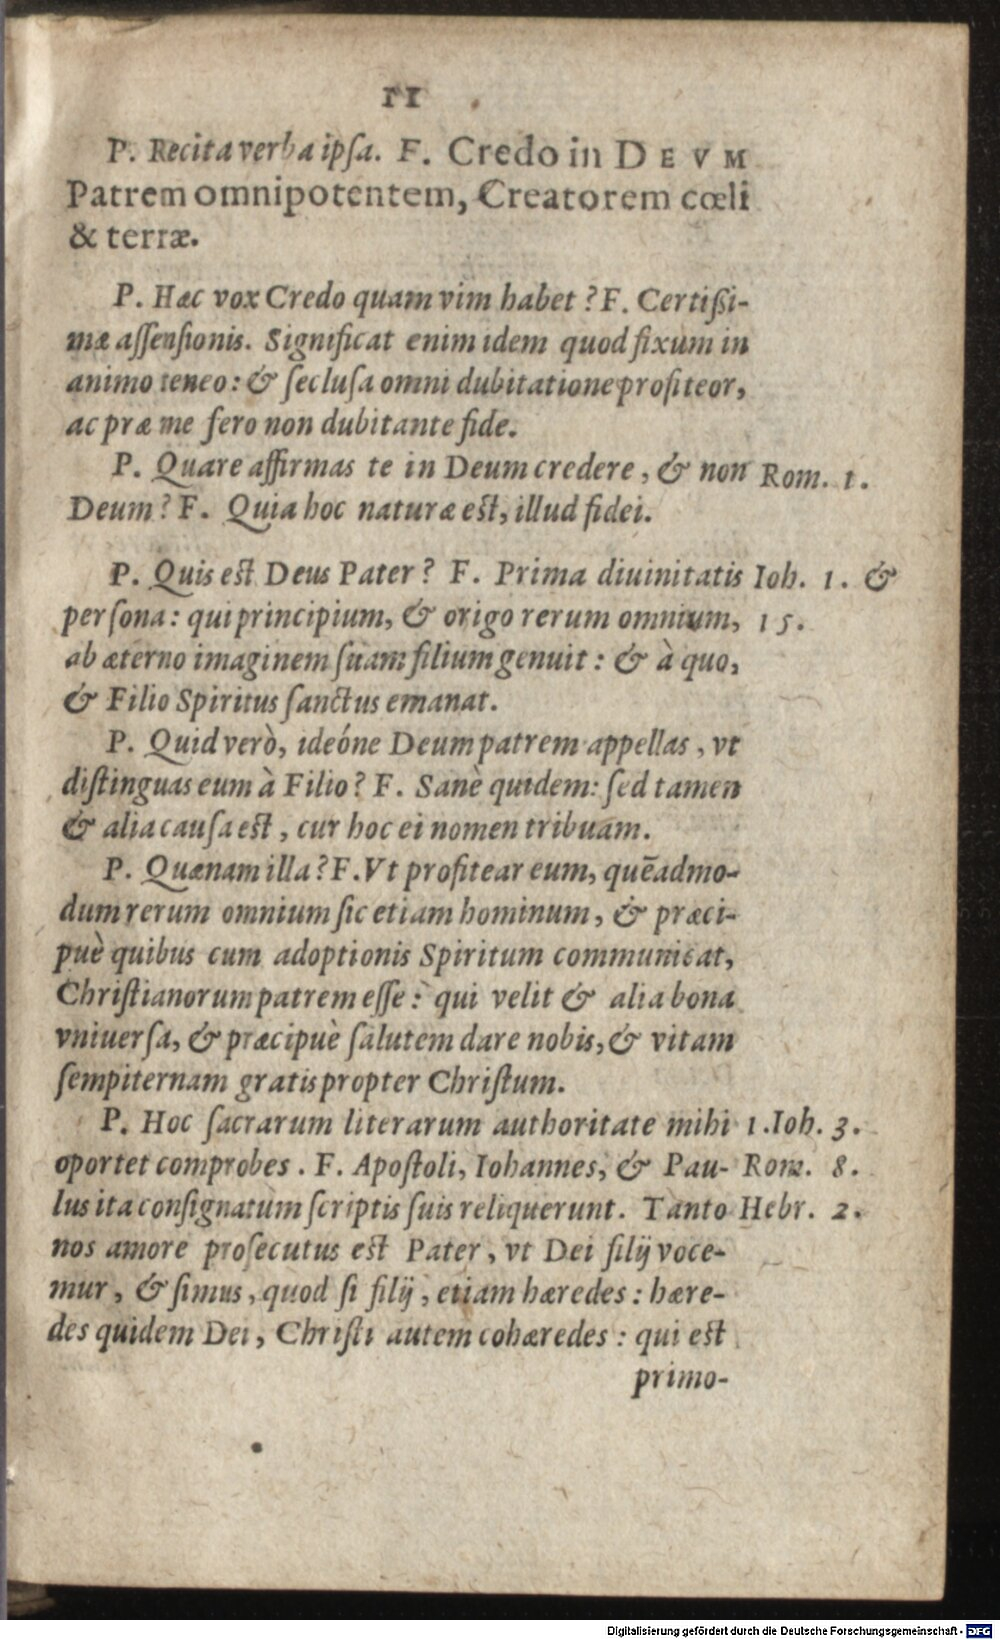 11
P. Recita verba ipsa. F. Credo in DEVM
Patrem omnipotentem, Creatorem cœli
& terræ.
P. Hæc vox Credo quam vim habet? F. Certißi-
mæ assensionis. Significat enim idem quod fixum in
animo teneo: & seclusa omni dubitatione profiteor,
ac præ me fero non dubitante fide.
P. Quare affirmas te in Deum credere, & non Rom. 1.
Deum? F. Quia hoc naturæ est, illud fidei.
P. Quis est Deus Pater? F. Prima diuinitatis Ioh. 1. &
persona: qui principium, & origo rerum omnium, 15.
ab æterno imaginem suam filium genuit: & à quo,
& Filio Spiritus sanctus emanat.
P. Quid verò, ideóne Deum patrem appellas, vt
distinguas eum à Filio? F. Sanè quidem: sed tamen
& alia causa est, cur hoc ei nomen tribuam.
P. Quænam illa? F. Vt profitear eum, quēadmo-
dum rerum omnium sic etiam hominum, & præci-
puè quibus cum adoptionis Spiritum communicat,
Christianorum patrem esse: qui velit & alia bona
vniuersa, & præcipuè salutem dare nobis, & vitam
sempiternam gratis propter Christum.
P. Hoc sacrarum literarum authoritate mihi 1. Ioh. 3.
oportet comprobes. F. Apostoli, Iohannes, & Pau- Rom. 8.
lus ita consignatum scriptis suis reliquerunt. Tanto Hebr. 2.
nos amore prosecutus est Pater, vt Dei filij voce-
mur, & simus, quod si filij, etiam hæredes: hære-
des quidem Dei, Christi autem cohæredes: qui est
primo-
Digitalisierung gefördert durch die Deutsche Forschungsgemeinschaft - DFG